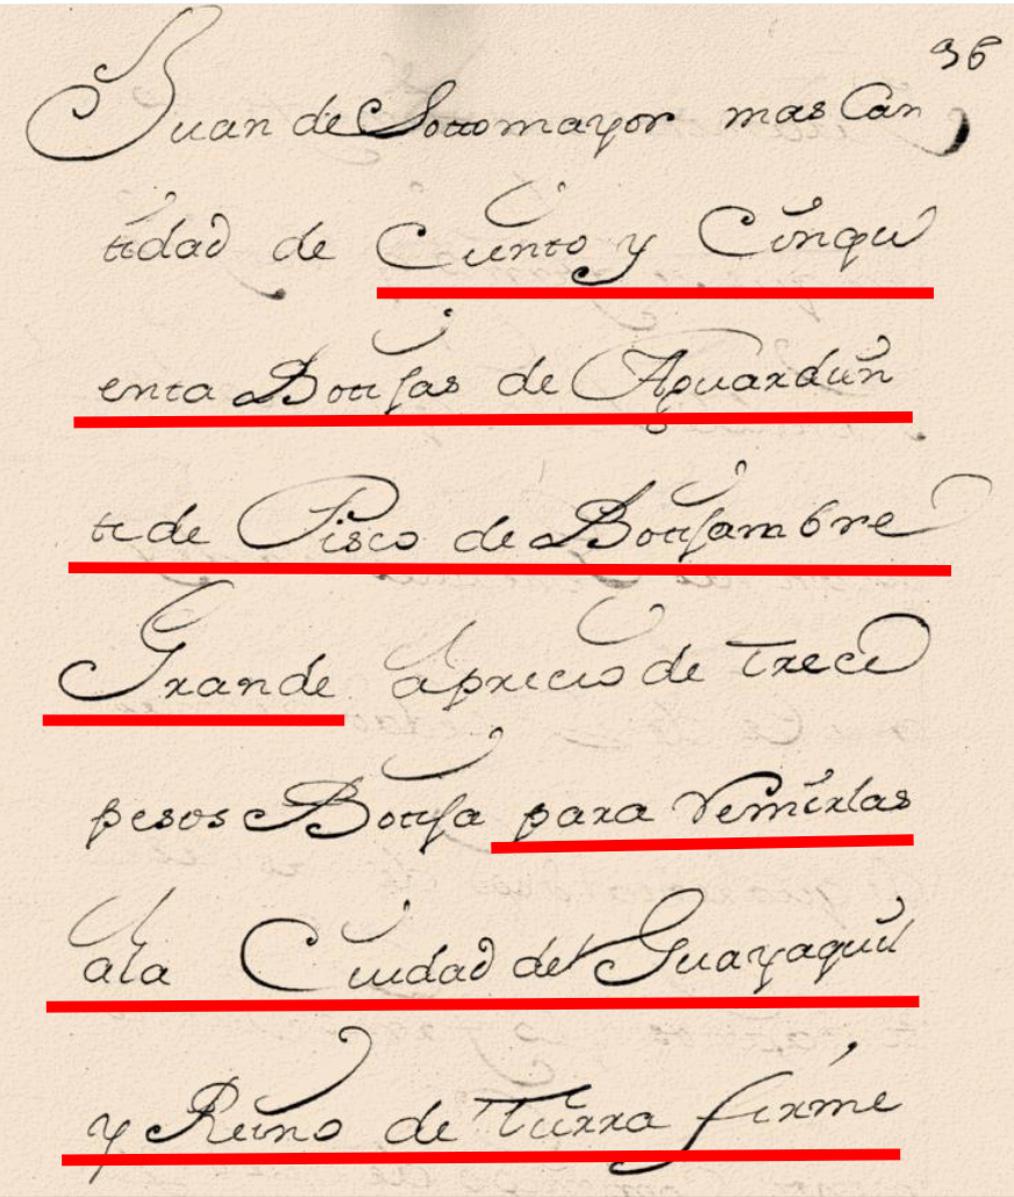 96
Juan de Sottomayor mas Can
tidad de Ciento y Cinqu
enta Botijas de Aguardien
te de Pisco de Botijambre
Grande a precio de trece
pesos Botija para Remirlas
a la Ciudad de Guayaquil
y Reino de Tierra firme